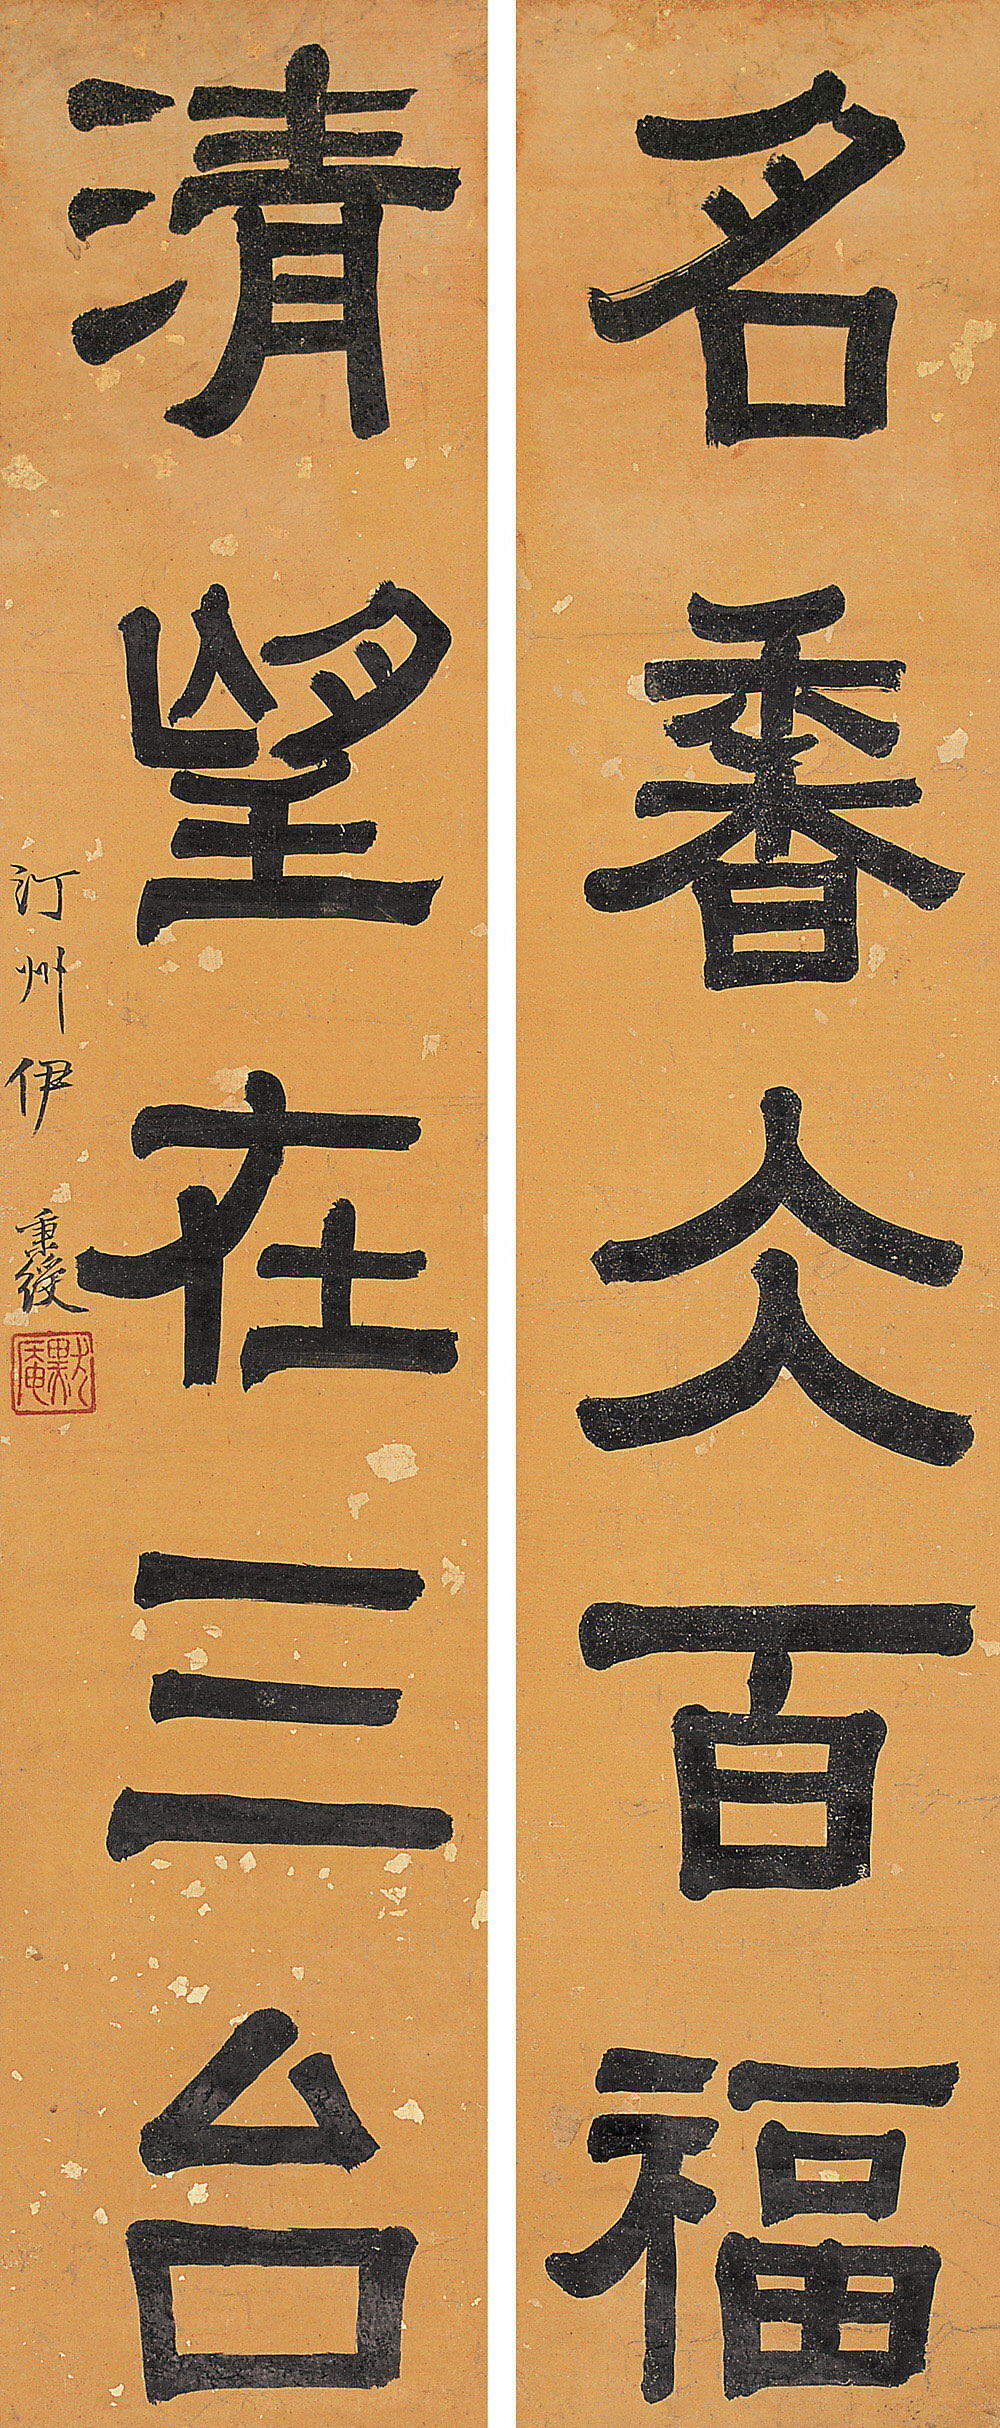 名香仌百福
清望在三台
汀州伊秉綬
默庵